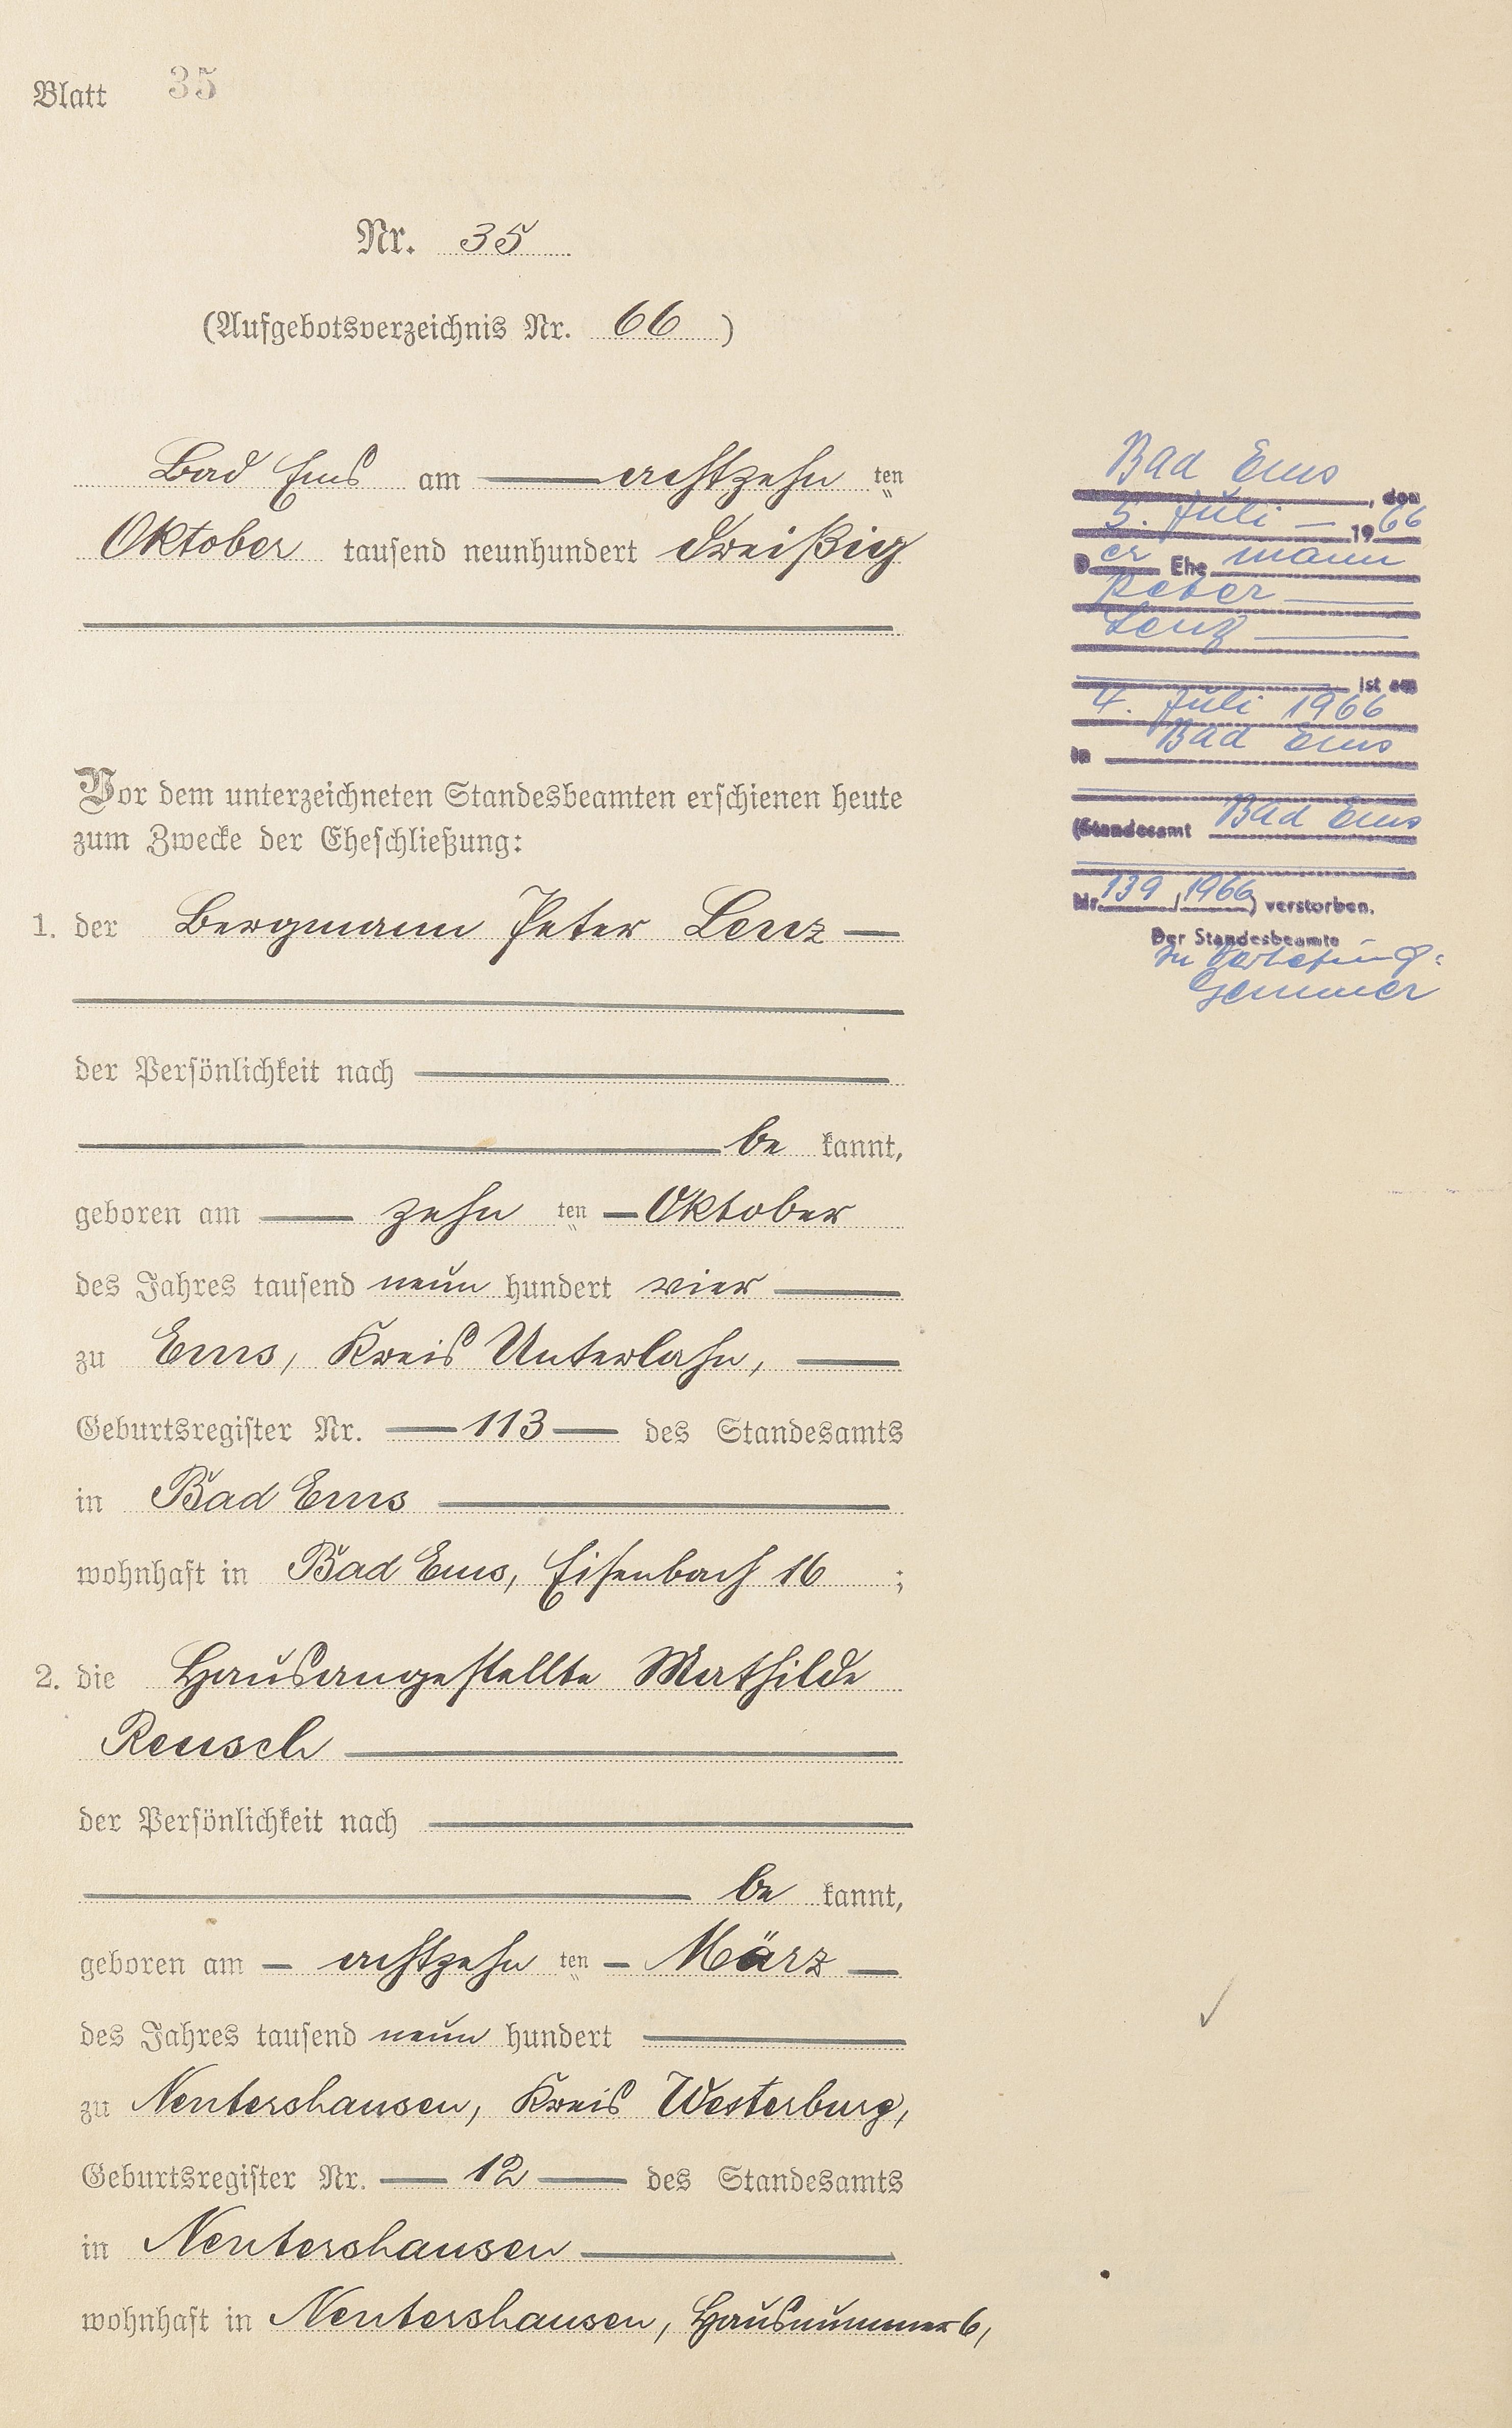 Blatt 35
Nr. 35
(Aufgebotsverzeichnis Nr. 66)
Bad Ems am achtzehn ten
Oktober tausend neunhundert dreißig
Vor dem unterzeichneten Standesbeamten erschienen heute
zum Zwecke der Eheschließung:
1. der Bergmann Peter Lenz
der Persönlichkeit nach
be kannt,
geboren am zehn ten Oktober
des Jahres tausend neun hundert vier
zu Ems, Kreis Unterlahn,
Geburtsregister Nr. 113 des Standesamts
in Bad Ems
wohnhaft in Bad Ems, Eisenbach 16 ;
2. die Hausangestellte Mathilde
Reusch
der Persönlichkeit nach
be kannt,
geboren am achtzehn ten März
des Jahres tausend neun hundert
zu Nentershausen, Kreis Westerburg,
Geburtsregister Nr. 12 des Standesamts
in Nentershausen
wohnhaft in Nentershausen, Hausnummer 6,
Bad Ems, den
5. Juli 1966
Der Ehemann
Peter
Lenz
ist am
4. Juli 1966
in Bad Ems
(Standesamt Bad Ems
Nr. 139 / 1966) verstorben.
Der Standesbeamte
In Vertretung:
Gemmer